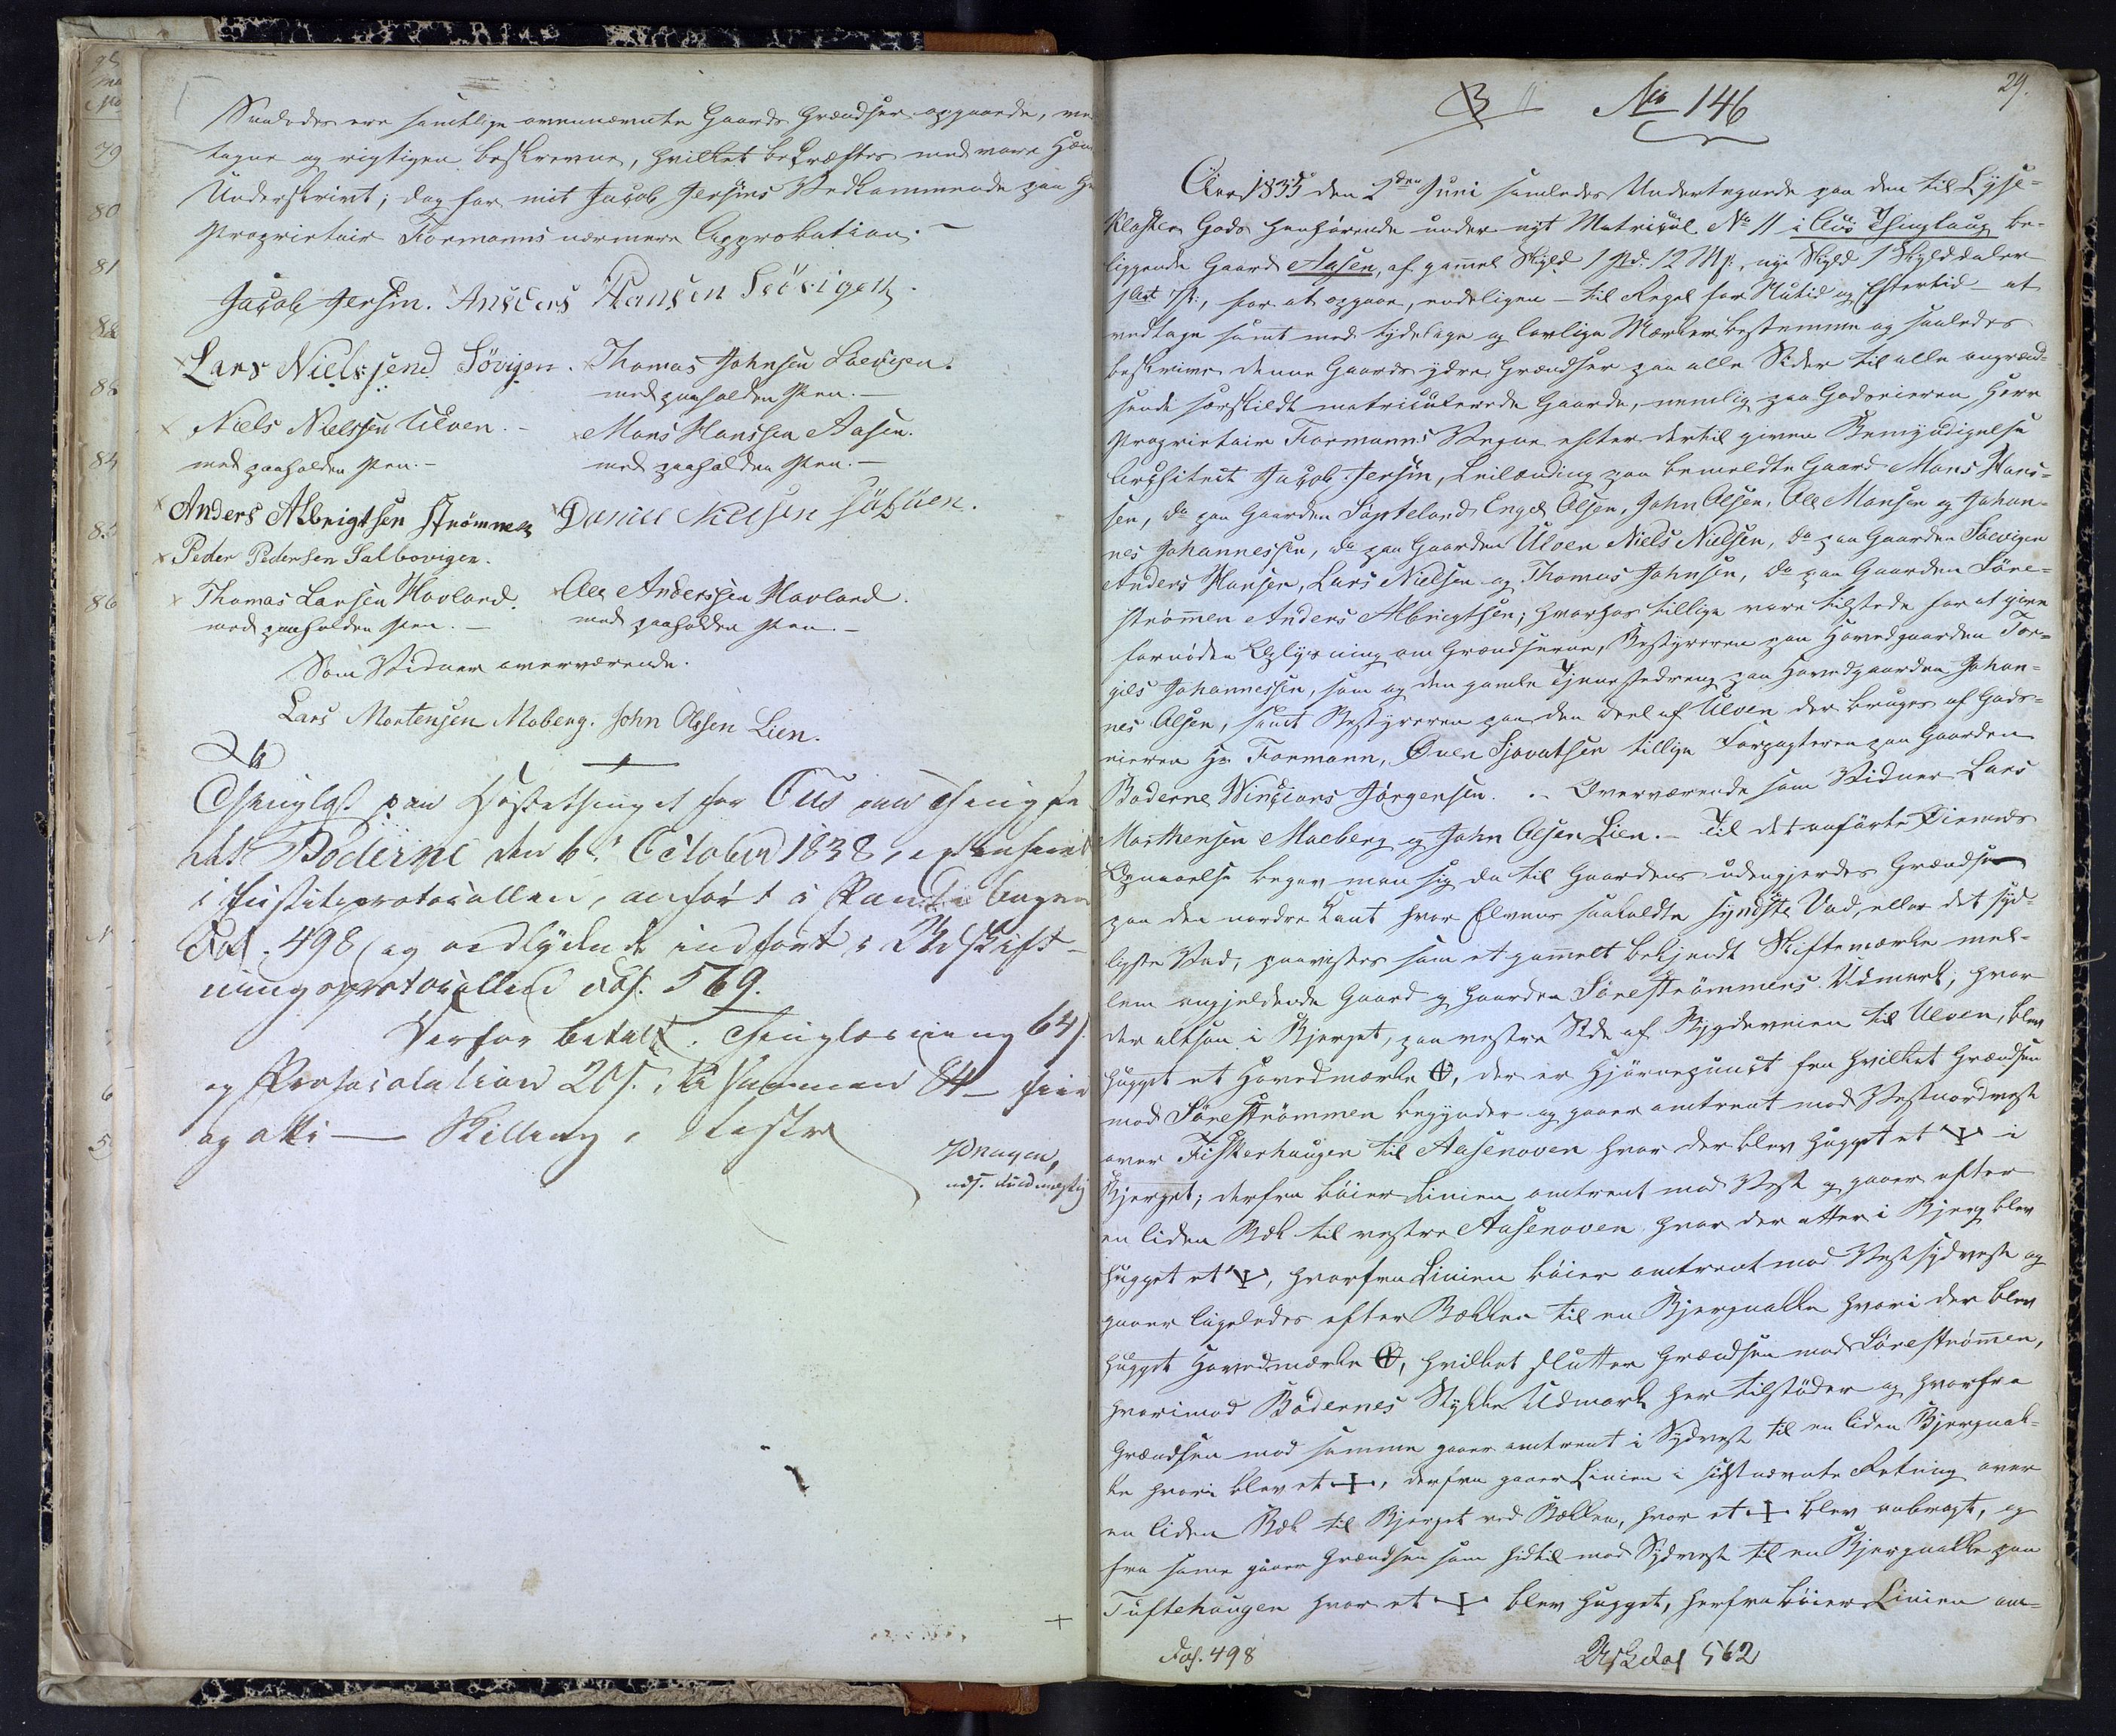 Saaledes ere samtlige ovennævnte Gaards Grændser opgaaede, ved
tagne og rigtigen beskrevne, hvilket bekræftes med vore Hæn
Underskrivt; dog for mit Jacob Jersins Vedkommende paa Hr
Proprietair Formanns nærmere Approbation. –
Jacob Jersin. Anders Hansen Söevigen
Lars Nielssend Sövigen. Thomas Johnsen Saevigen.
med paaholden Pen. –
Niels Nielssen Ulven. – Mons Hanssen Aasen.
med paaholden Pen. – med paaholden Pen. –
Anders Albrigtsen Strømmen Daniel Nielsen
Peder Pedersen Salbovigen.
Thomas Larsen Havland. Ole Anderssen Havland.
med paaholden Pen. – med paaholden Pen. –
Som Vidner overværende.
Lars Mortensen Moberg. John Olssen Lien.
Thinglæst paa Høstethinget for Ous paa Thingste
det Boderne den 6te October 1838,
i Justitsprotocollen, anført i Pantebogen
Fol. 498 og ordlydende indført i Udskift-
ningsprotocollen Fol. 569.
Derfor betalt: Thinglæsning 64 s.
og Protocolation 20 s., tilsammen 84 – fire
og otti — Skilling,
29.
3 11 No 146
Aar 1835 den 2den Juni samledes Undertegnede paa den til Lyse-
kloster Gods henhørende under nyt Matricul No 11 i Ous Thinglaug be-
liggende Gaard Aasen, af gammel Skyld 1 Pd. 12 Mk, nye Skyld 1 Skylddaler
1 Ort 7 s:, for at opgaae, endeligen – til Regel for Nutid og Eftertid – at
vedtage samt med tydelige og lovlige Mærker bestemme og saaledes
beskrive denne Gaards ydre Grændser paa alle Sider til alle angrænd-
sende særskildt matriculerede Gaarde, nemlig paa Godseieren Herr
Proprietair Formanns Vegne efter dertil given Bemyndigelse
Architect Jacob Jersin, Leilænding paa bemeldte Gaard Mons Hans-
sen, do paa Gaarden Søfteland Engel Olsen, John Olsen, Ole Monsen og Johan-
nes Johannessen, do paa Gaarden Ulven Niels Nielsen, do paa Gaarden Saevigen
Anders Hansen, Lars Nielsen og Thomas Johnsen, do paa Gaarden Søre-
strømmen Anders Albrigtsen; hvorhos tillige vare tilstede for at give
fornøden Oplysning om Grændserne, Bestyreren paa Hovedgaarden Tor-
gils Johannessen, som og den gamle Tjenestedreng paa Hovedgaarden Johan-
nes Olsen, samt Bestyreren paa den Deel af Ulven der bruges af Gods-
eieren Hr Formann, Øven Sjovatsen tillige Forpagteren paa Gaarden
Boderne Windians Jørgensen. – Overværende som Vidner Lars
Morthensen Moeberg og John Olsen Lien. – Til det anførte Øiemeds
Opnaaelse begav man sig da til Gaardens udengjerdes Grændse
paa den nordre Kant hvor Elvens saakaldte syndste Vad, eller det syd-
ligste Vad, paavistes som et gammelt bekjendt Skiftemærke mel-
lem angjeldende Gaard og Gaarden Sørestrømmens Udmark, hvor
der altsaa i Bjerget, paa vestre Side af Bygdeveien til Ulven, blev
hugget et Hovedmærke ⊕, der er Hjørnepunct fra hvilket Grændsen
mod Sørestrømmen begynder og gaaer omtrent mod Vestnordvest
over Fiskerhaugen til Aasenoven hvor der blev hugget et + i
Bjerget; derfra bøier Linien omtrent mod Vest og gaaer efter
en liden Bæk til vestre Aasenoven hvor der atter i Bjerg blev
hugget et +, hvorfra Linien bøier omtrent mod Vestsydvest og
gaaer ligeledes efter Bækken til en Bjergnakke hvori der blev
hugget Hovedmærke ⊕, hvilket slutter Grændsen mod Sørestrømmen,
hvorimod Bödernes Stykke Udmark her tilstøder og hvorfra
Grændsen mod samme gaaer omtrent i Sydvest til en liden Bjergnak-
ke hvori blev et +, derfra gaaer Linien i sidstnævnte Retning over
en liden Bæk til Bjerget ved Bækken, hvor et + blev anbragt, og
fra samme gaaer Grændsen som hidtil mod Sydvest til en Bjergnakke paa
Tuftehaugen hvor et + blev hugget, herfra bøier Linien om-
Fol. 498
562